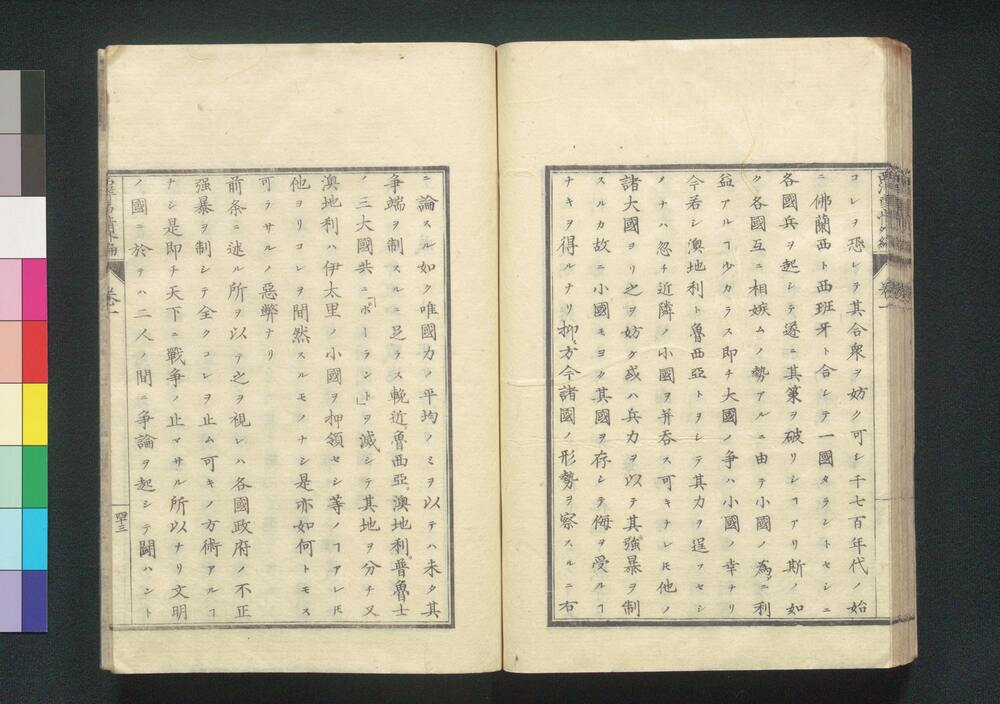 コレヲ恐レテ其合衆ヲ妨ク可レ千七百年代ノ始
ニ佛蘭西ト西班牙ト合シテ一國タラントセシニ
各國兵ヲ起シテ遂ニ其策ヲ破リシヿアリ斯ノ如
ク各國互ニ相嫉ムノ勢アルニ由テ小國ノ為ニ利
益アルヿ少カラス即チ大國ノ争ハ小國ノ幸ナリ
今若シ澳地利ト魯西亞トヲシテ其力ヲ逞フセシ
ノナハ忽チ近隣ノ小國ヲ并吞ス可キナレ𪜈他ノ
諸大國ヨリ之ヲ妨ク或ハ兵力ヲ以テ其強暴ヲ制
スルカ故ニ小國モヨク其國ヲ存シテ侮ヲ受ルヿ
ナキヲ得ルナリ抑方今諸國ノ形勢ヲ察スルニ右
ニ論スル如ク唯國力ノ平均ノミヲ以テハ未タ其
争端ヲ制スルニ足ラス輓近魯西亞澳地利普魯士
ノ三大國共ニ「ポーラント」ヲ滅シテ其地ヲ分チ又
澳地利ハ伊太里ノ小國ヲ押領セシ等ノヿアレ𪜈
他ヨリコレヲ間然スルモノナシ是亦如何トモス
可ラサルノ惡弊ナリ
前条ニ述ル所ヲ以テ之ヲ視レハ各國政府ノ不正
強暴ヲ制シテ全クコレヲ止ム可キノ方術アルヿ
ナシ是即チ天下ニ戰争ノ止マサル所以ナリ文明
ノ國ニ於テハ二人ノ間ニ争論ヲ起シテ鬪ハント
卷一
四十三